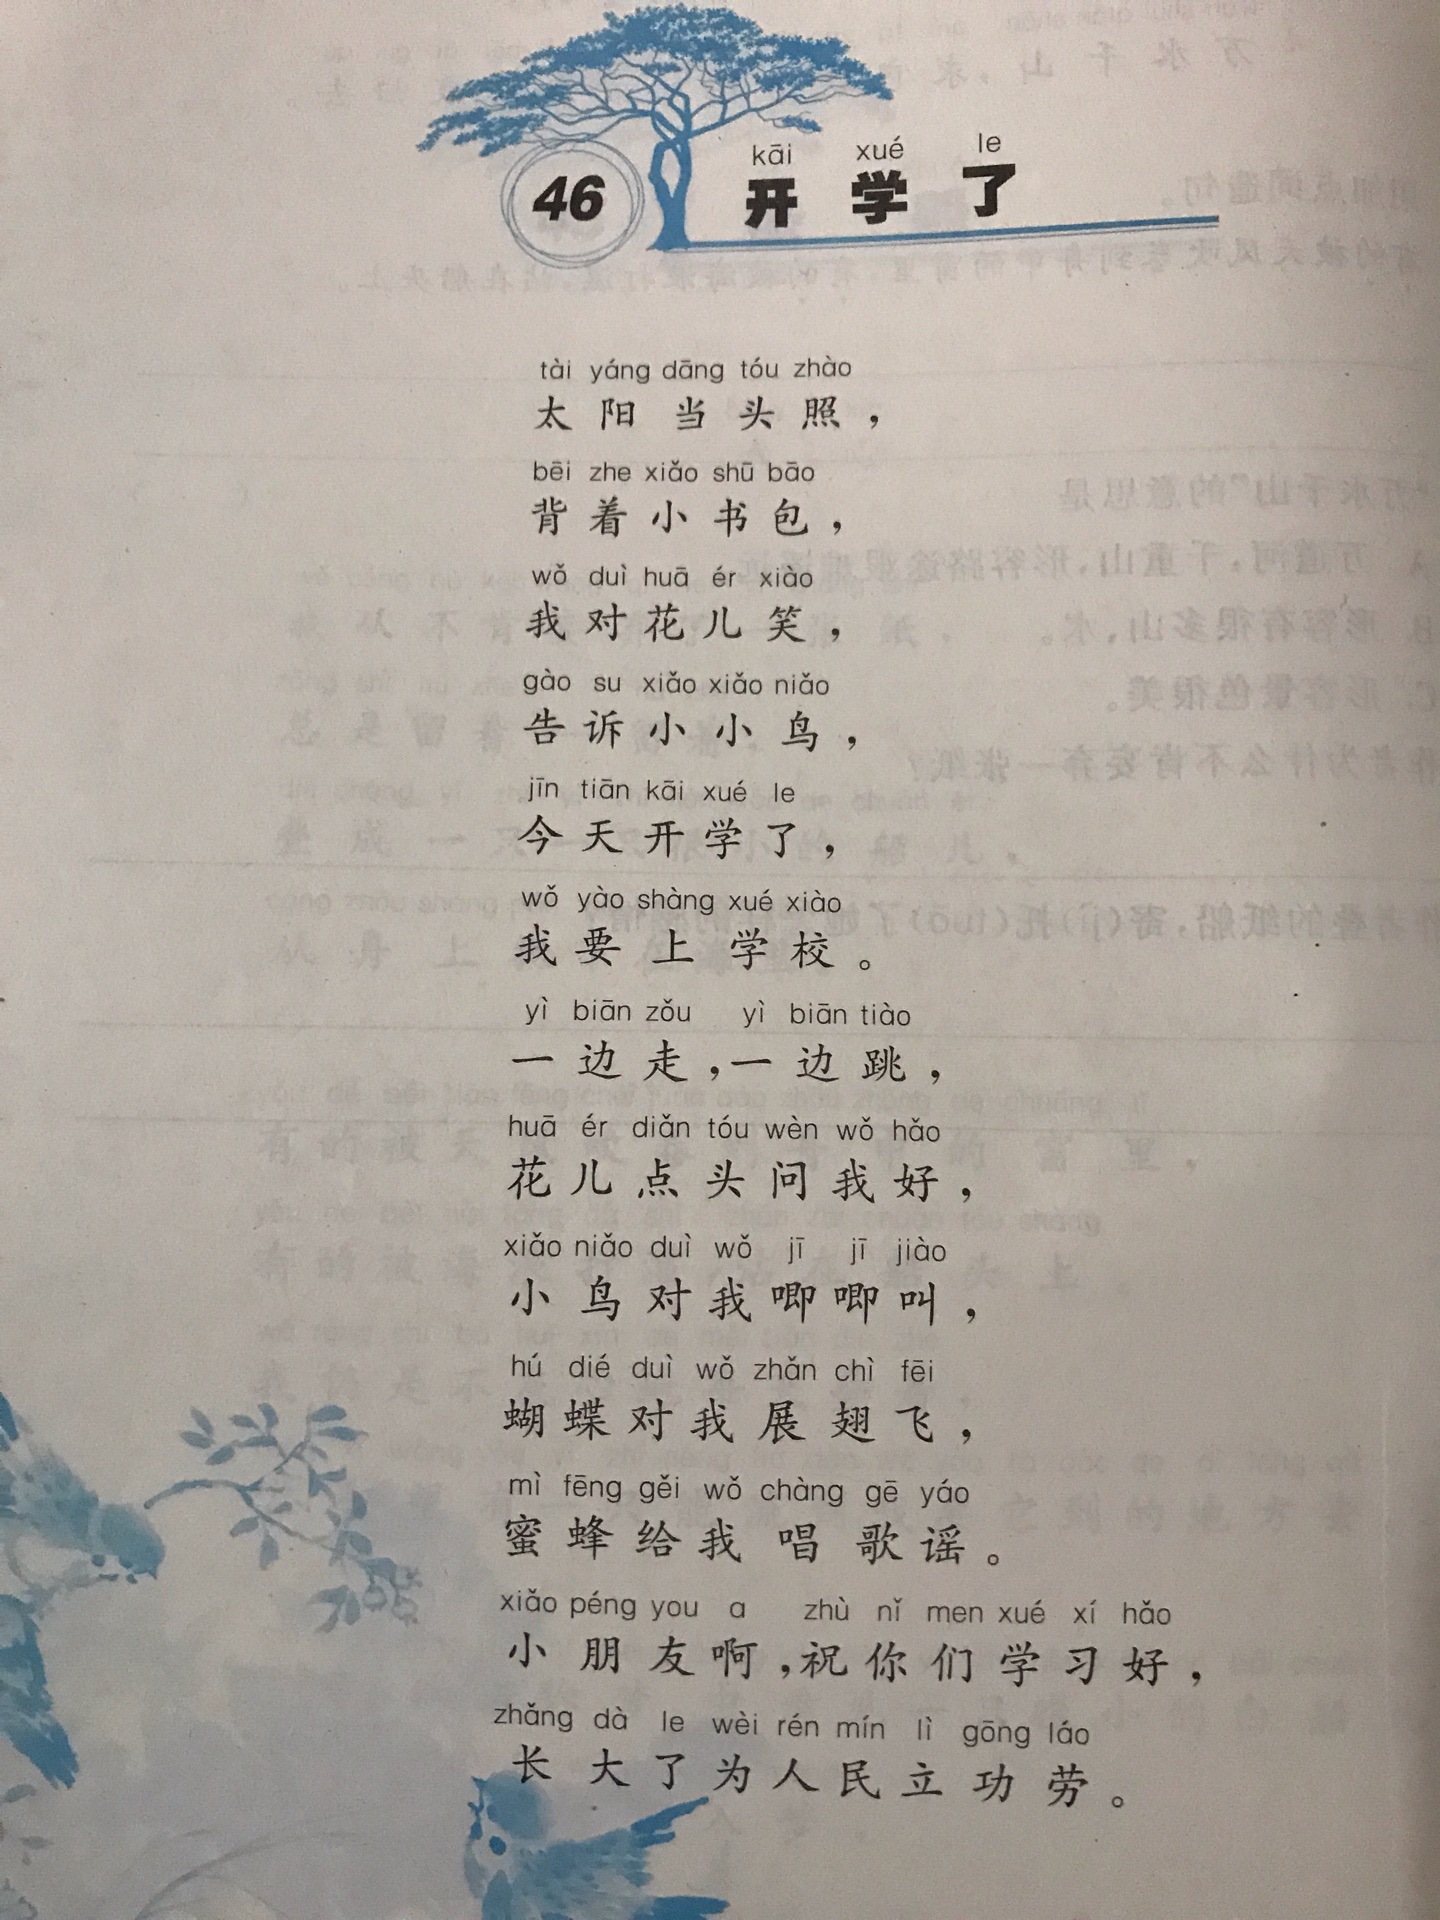 46
kāi xué le
开学了
tài yáng dāng tóu zhào
太阳当头照，
bēi zhe xiǎo shū bāo
背着小书包，
wǒ duì huā ér xiào
我对花儿笑，
gào su xiǎo xiǎo niǎo
告诉小小鸟，
jīn tiān kāi xué le
今天开学了，
wǒ yào shàng xué xiào
我要上学校。
yì biān zǒu yì biān tiào
一边走，一边跳，
huā ér diǎn tóu wèn wǒ hǎo
花儿点头问我好，
xiǎo niǎo duì wǒ jī jī jiào
小鸟对我唧唧叫，
hú dié duì wǒ zhǎn chì fēi
蝴蝶对我展翅飞，
mì fēng gěi wǒ chàng gē yáo
蜜蜂给我唱歌谣。
xiǎo péng you a zhù nǐ men xué xí hǎo
小朋友啊，祝你们学习好，
zhǎng dà le wèi rén mín lì gōng láo
长大了为人民立功劳。